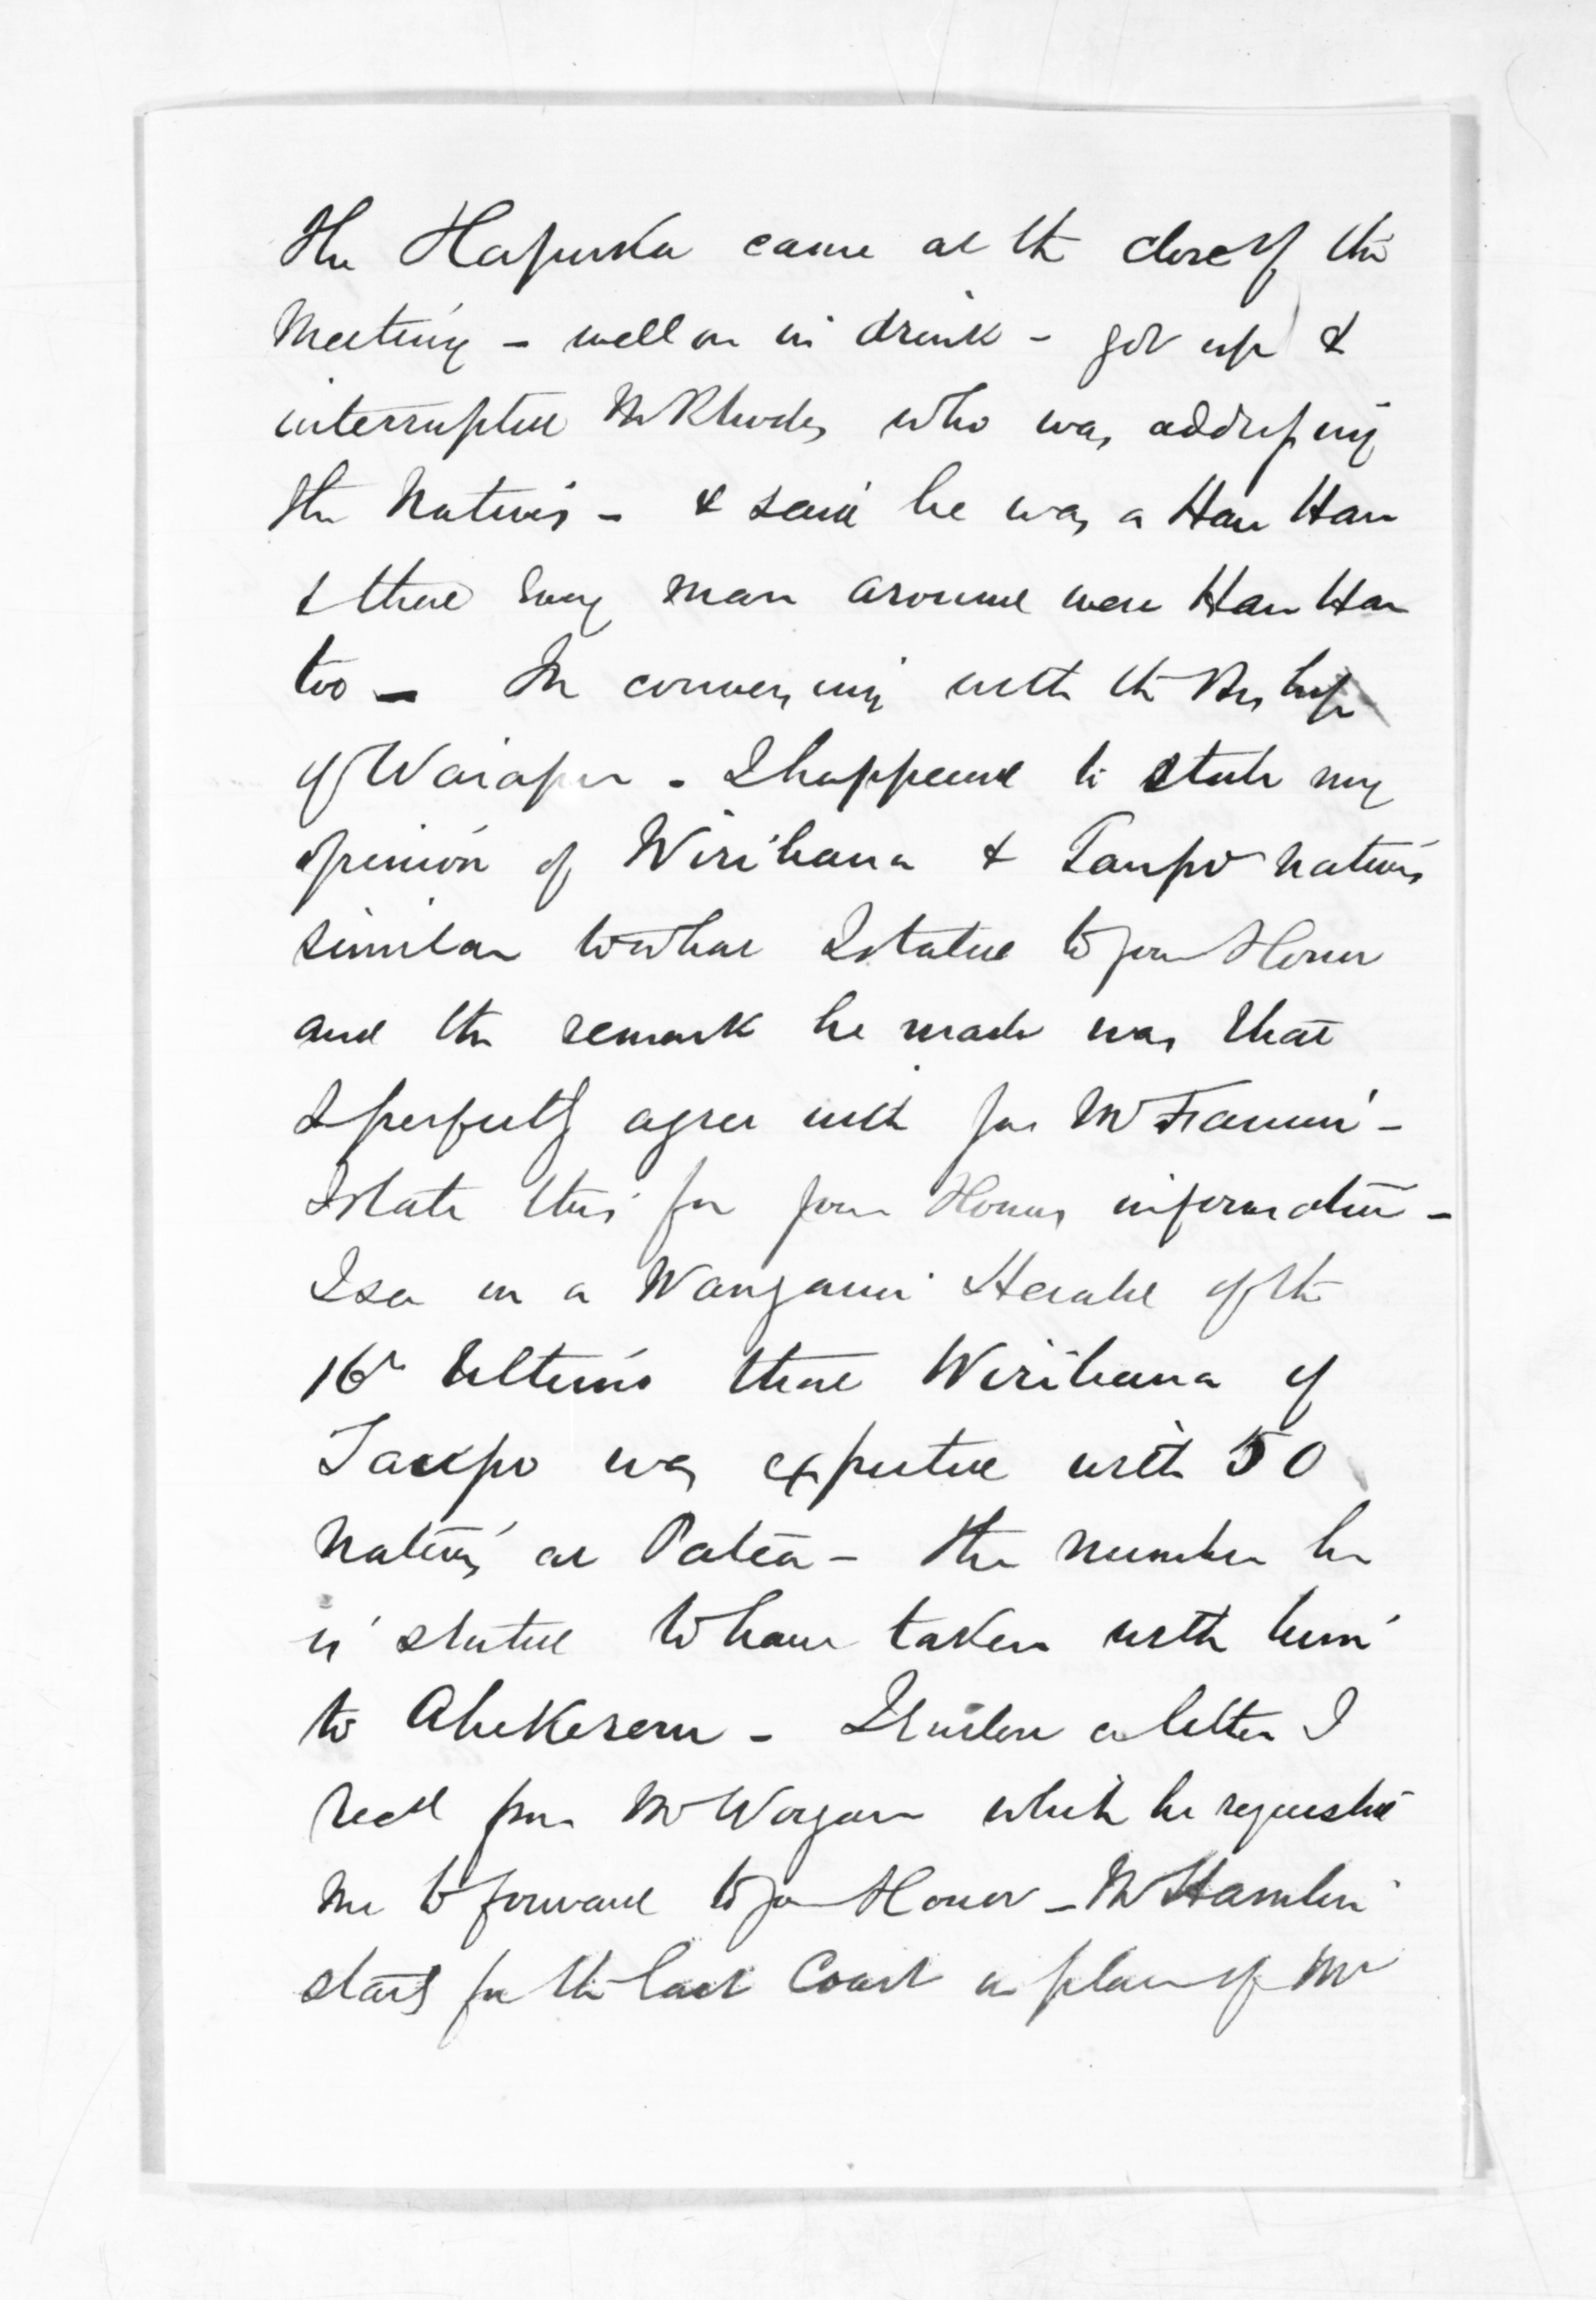 The Hapuka came at the close of the
Meeting - well on in drink - got up &
interrupted Mr Rhodes who was addressing
the Natives - & said he was a Hau Hau
& that every man around were Hau Hau
too - In conversing with the Bishop
of Waiapu - I happened to state my
opinion of Wirihana & Taupo Natives
similar to what I stated to your Honor
and the remark he made was that
I perfectly agree with you Mr
I state this for your Honors information -
I see in a Wanganui Herald of the
16th Ultimo that Wirihana of
Taupo was expected with 50
Natives at Patea - the number he
is stated to have taken with him
to Ahikereru - I enclose a letter I
recd from Mr Worgan which he requested
me to forward to your Honor - Mr Hamlin
starts for the East Coast in place of Mr